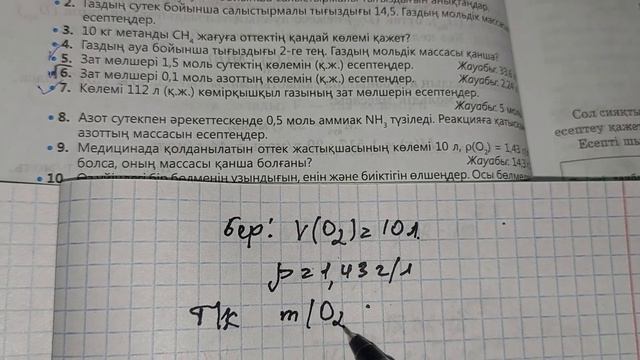 2. Газдың сутек бойынша салыстырмалы тығыздығы 14,5. Газдың мольдік массасын
есептеңдер.
3. 10 кг метанды CH₄ жағуға оттектің қандай көлемі қажет?
4. Газдың ауа бойынша тығыздығы 2-ге тең. Газдың мольдік массасы қанша?
5. Зат мөлшері 1,5 моль сутектің көлемін (қ.ж.) есептеңдер. Жауабы: 33,6
6. Зат мөлшері 0,1 моль азоттың көлемін (қ.ж.) есептеңдер. Жауабы: 2,24
7. Көлемі 112 л (қ.ж.) көмірқышқыл газының зат мөлшерін есептеңдер.
Жауабы: 5 моль
8. Азот сутекпен әрекеттескенде 0,5 моль аммиак NH₃ түзіледі. Реакцияға
азоттың массасын есептеңдер.
9. Медицинада қолданылатын оттек жастықшасының көлемі 10 л, ρ(O₂) = 1,43
болса, оның массасы қанша болғаны? Жауабы: 14,3
10. бөлменің ұзындығын, енін және биіктігін өлшеңдер. Осы
Сол сияқты
есептеу қажет
Есепті
Бер: V(O₂)=10л.
ρ=1,43 г/л
Т/к m(O₂